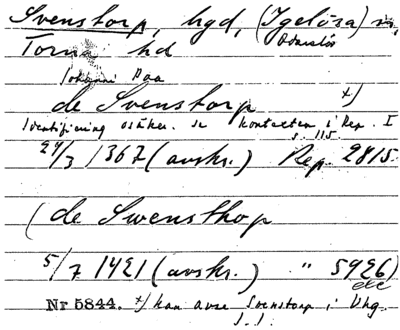 Svenstorp, hgd, (Igelösa) sn,
Odarslöv
Torna hd
Johanni Paa
de Svenstorp x)
Identifiering osäker. se kontexten i Rep. I
s. 115.
27/3 1367 (avskr.) Rep. 2815
(de Swensthop
5/7 1421 (avskr.) " 5926)
etc
Nr 5844. x) kan avse Svenstorp i Vhg.